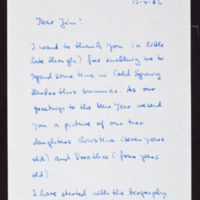 Dear Jim!
I want to thank you (a little
late though) for enabling me to
spend some time in Cold Spring
Harbor this summer. As our
greetings to the New Year we send
you a picture of our two
daughters Christina (seven years
old) and Dorothee (four years
old).
I have started with the biography